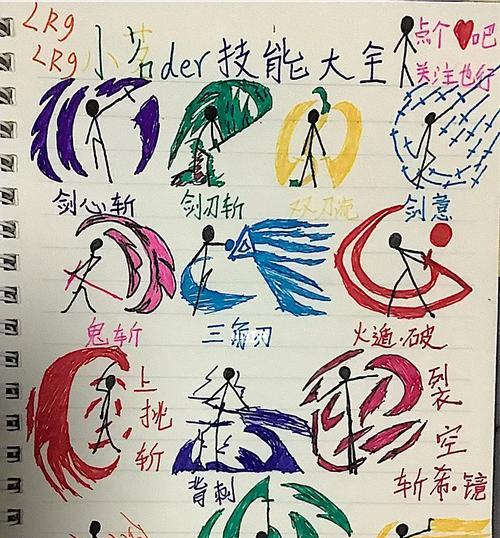 LRg
LRg小茗der技能大全
点个❤吧
关注也行
剑心斩
剑刃斩
双刀流
剑意
鬼斩
三角刃
火遁·破
上挑斩
背刺
裂空
斩希·镜